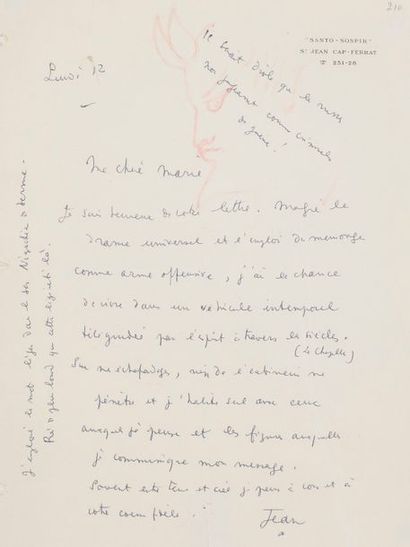 210
"SANTO-SOSPIR"
ST JEAN CAP-FERRAT
☎ 251-28
Lundi 12
Il serait drôle que les russes
nous jugeassent comme criminels
de guerre!
Ma chère Marie
Je suis heureux de votre lettre. Malgré le
drame universel et l'emploi du mensonge
comme arme offensive, j'ai la chance
de vivre dans un véhicule intemporel
téléguidé par l'esprit à travers les siècles.
(La Chapelle)
Sur mes échafaudages, rien de l'extérieur ne
pénètre et j'habite seul avec ceux
auxquels je pense et les figures auxquelles
je communique mon message.
Souvent entre terre et ciel je pense à vous et à
votre cœur fidèle.
Jean
J'emploie le mot léger dans le sens Nietzschéen du terme.
Rien de plus lourd que cette légèreté là.